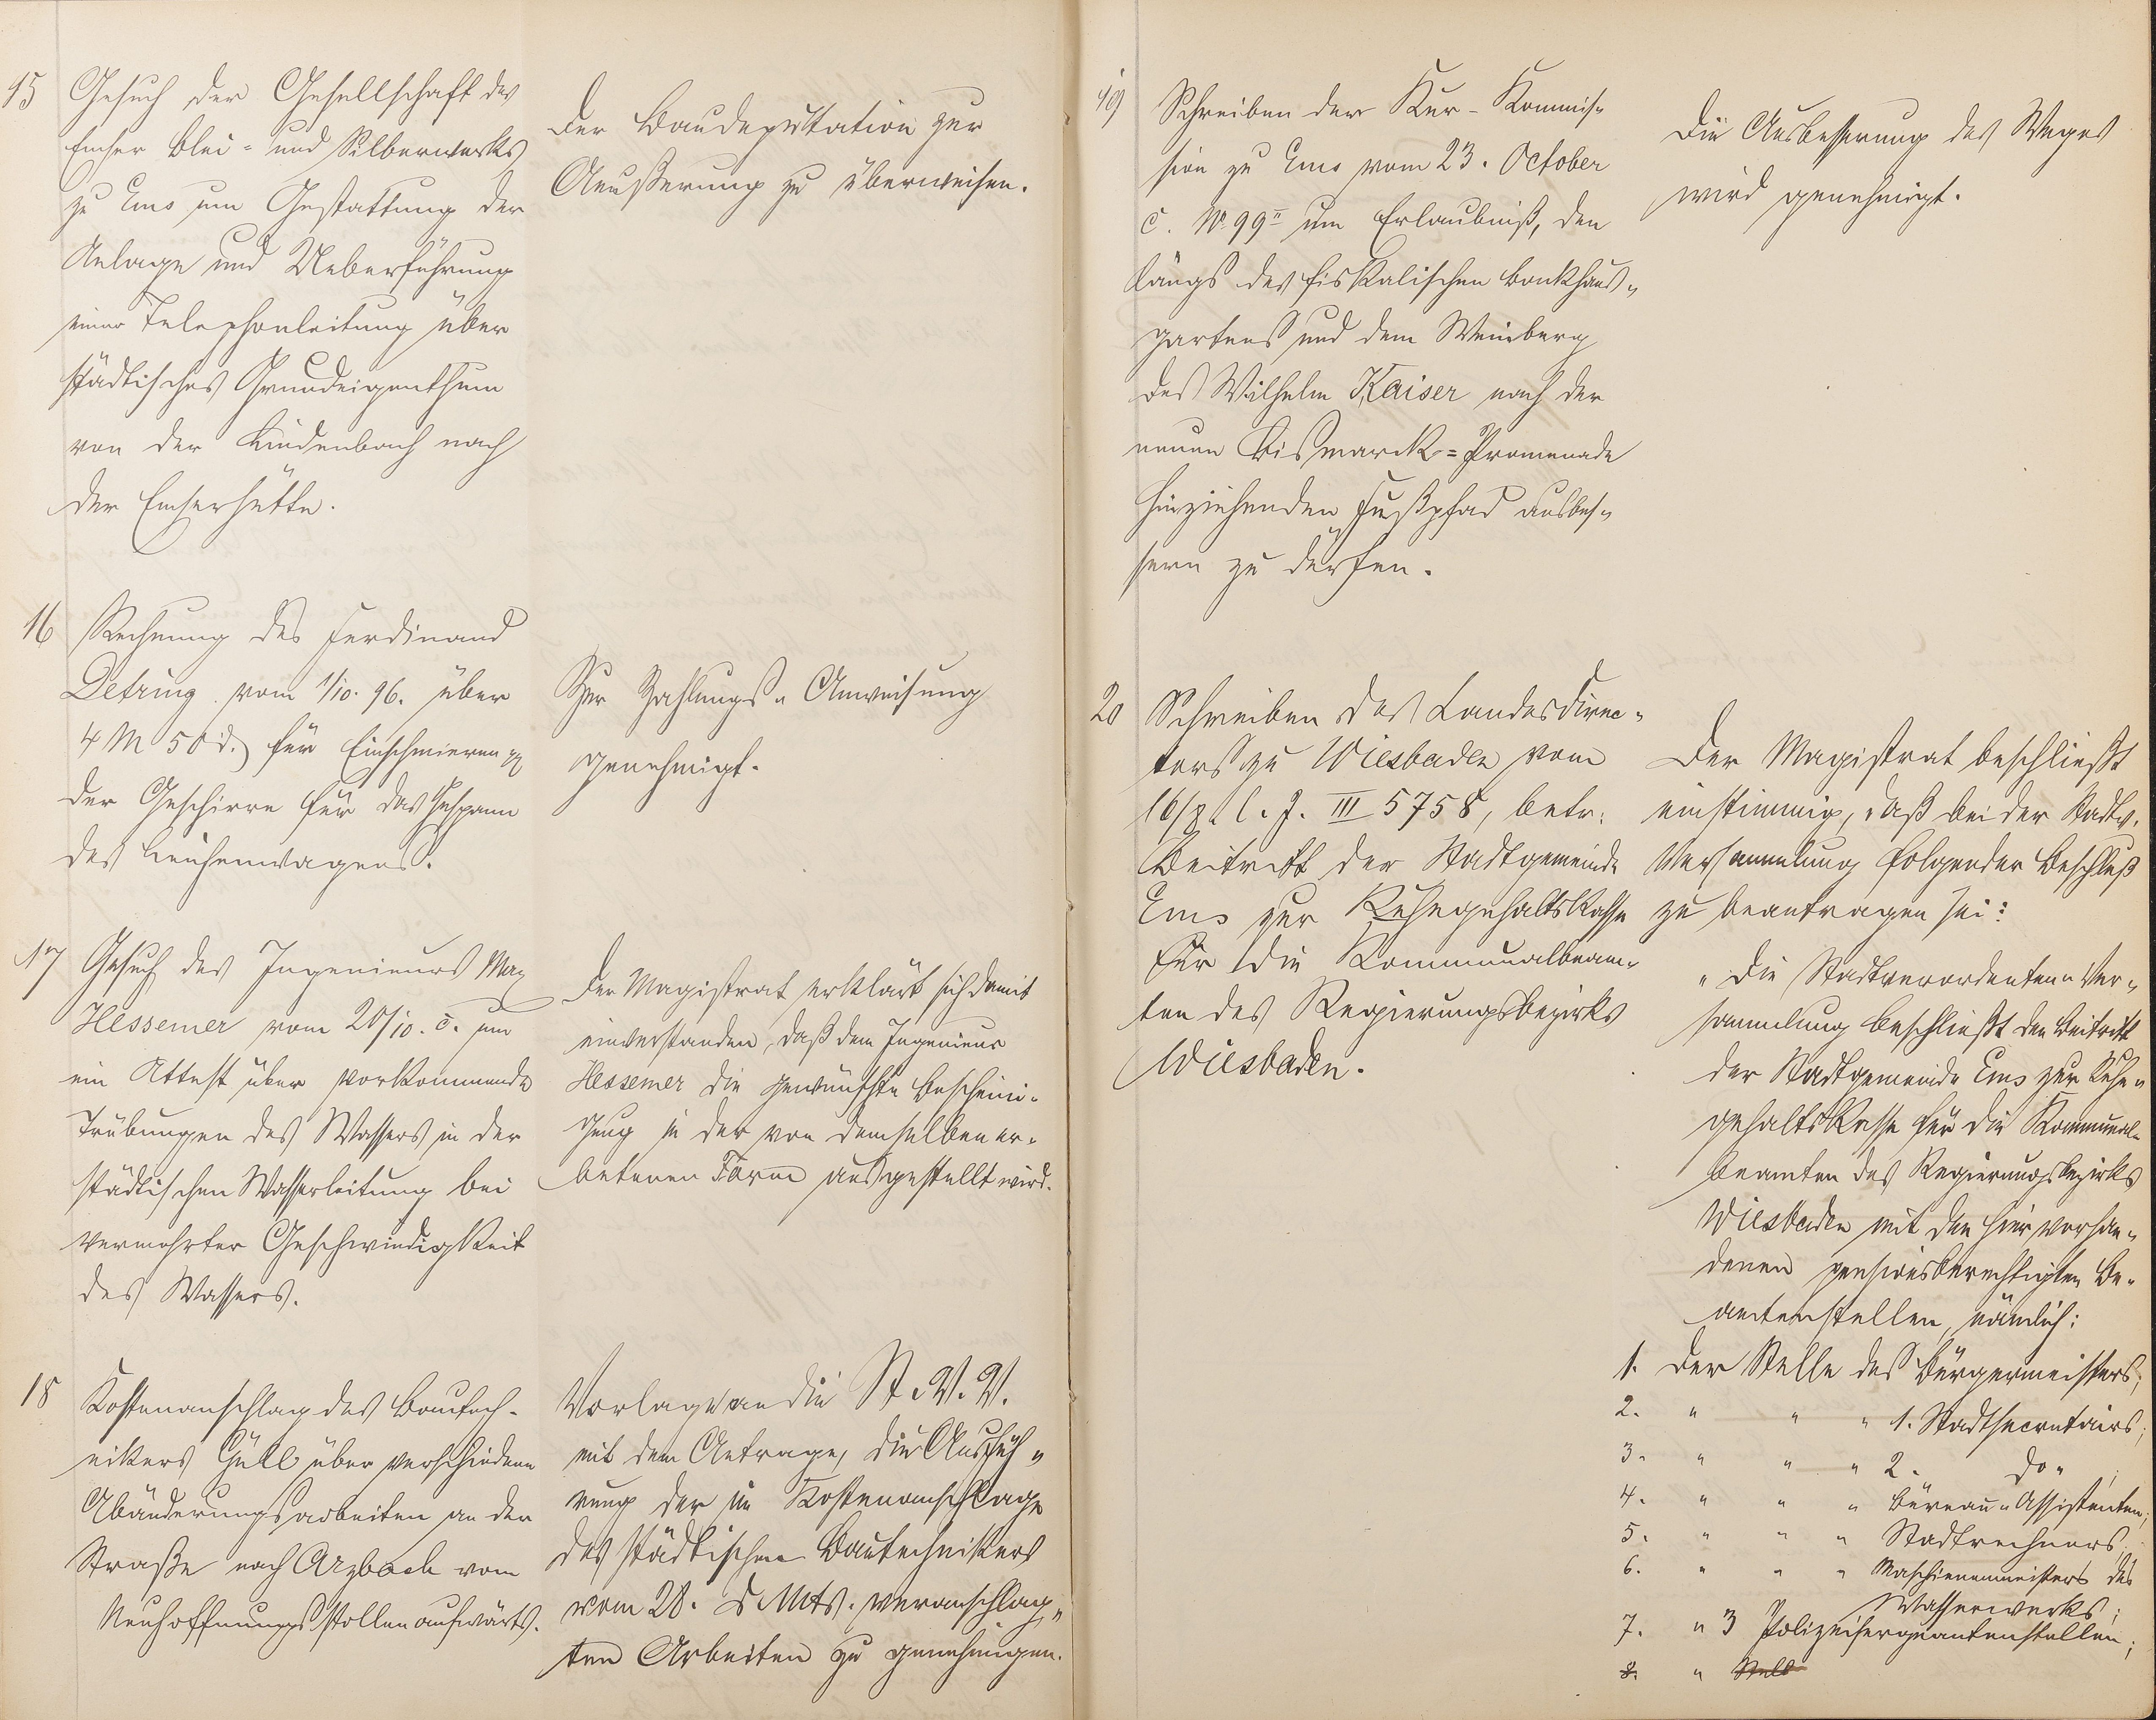 15
Gesuch der Gesellschaft des
Emser Blei- und Silberwerks
zu Ems um Gestattung der
Anlage und Ueberführung
einer Telephonleitung über
städtisches Grundeigenthum
von der Lindenbach nach
der Emserhütte.
Der Baudeputation zur
Aeußerung zu überweisen.
16
Rechnung des Ferdinand
Detring vom 1/10. 96. über
4 M 50 d. für Einschmieren
der Geschirre für das Gespann
des Leichenwagens.
Zur Zahlungs-Anweisung
genehmigt.
17
Gesuch des Ingenieurs Max
Hessemer vom 20/10. c. um
ein Attest über vorkommende
Trübungen des Wassers in der
städtischen Wasserleitung bei
vermehrter Geschwindigkeit
des Wassers.
Der Magistrat erklärt sich damit
einverstanden, daß dem Ingenieur
Hessemer die gewünschte Bescheini-
gung in der von demselben er-
betenen Form ausgestellt wird.
18
Kostenanschlag des Bautech-
nikers Güll über verschiedene
Abänderungsarbeiten an der
Straße nach Arzbach vom
Neuhoffnungsstollen aufwärts.
Vorlage an die St. V. V.
mit dem Antrage, die Ausfüh-
rung der im Kostenanschlage
des städtischen Bautechnikers
vom 28. d Mts. veranschlag-
ten Arbeiten zu genehmigen.
19
Schreiben der Kur-Kommis-
sion zu Ems vom 23. October
c. No 99 II um Erlaubniß, den
längs des fiskalischen Bonkhaus-
gartens und dem Weinberg
des Wilhelm Kaiser nach der
neuen Bismarck=Promenade
hinziehenden Fußpfad ausbes-
sern zu dürfen.
Die Ausbesserung des Weges
wird genehmigt.
20
Schreiben des Landesdirec-
tors zu Wiesbaden vom
l. J. III 5758, betr.
Beitritt der Stadtgemeinde
Ems zur Ruhegehaltskasse
für die Kommunalbeam-
ten des Regierungsbezirks
Wiesbaden.
Der Magistrat beschließt
einstimmig, daß bei der Stadtv.
Versammlung folgender Beschluß
zu beantragen sei:
"Die Stadtverordneten-Ver-
sammlung beschließt den Beitritt
der Stadtgemeinde Ems zur Ruhe-
gehaltskasse für die Kommunal-
beamten des Regierungsbezirks
Wiesbaden mit den hier vorhan-
denen pensionsberechtigten Be-
amtenstellen, nämlich:
1. Der Stelle des Bürgermeisters;
2. " " " 1. Stadtsecretairs;
3. " " " 2. do. ;
4. " " " Büreau-Assistenten;
5. " " " Stadtrechners;
6. " " " Maschinenmeisters des
Wasserwerks;
7. " 3 Polizeisergeantenstellen;
8. " Stell